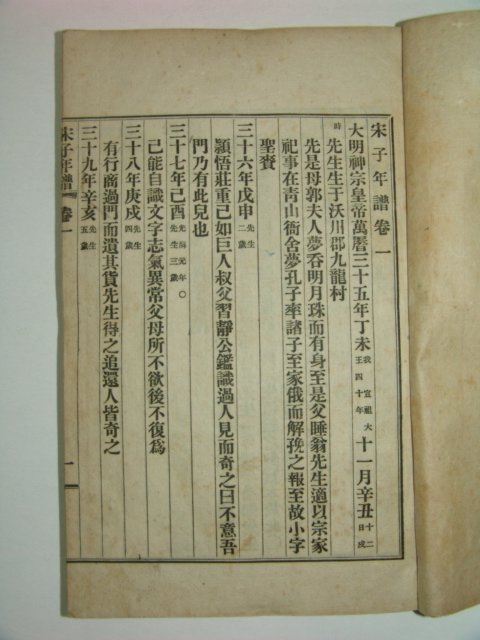 宋子年譜卷一
大明神宗皇帝萬曆三十五年丁未我宣祖大王四十年十一月辛丑十二日戌時
先生生于沃川郡九龍村
先是母郭夫人夢吞明月珠而有身至是父睡翁先生適以宗家
祀事在靑山衙舍夢孔子率諸子至家俄而解娩之報至故小字
聖賚
三十六年戊申先生二歲
穎悟莊重己如巨人叔父習靜公鑑識過人見而奇之曰不意吾
門乃有此兒也
三十七年己酉光海元年○先生三歲
己能自識文字志氣異常父母所不欲後不復爲
三十八年庚戌先生四歲
有行商過門而遺其貨先生得之追還人皆奇之
三十九年辛亥先生五歲
宋子年譜 卷一
一